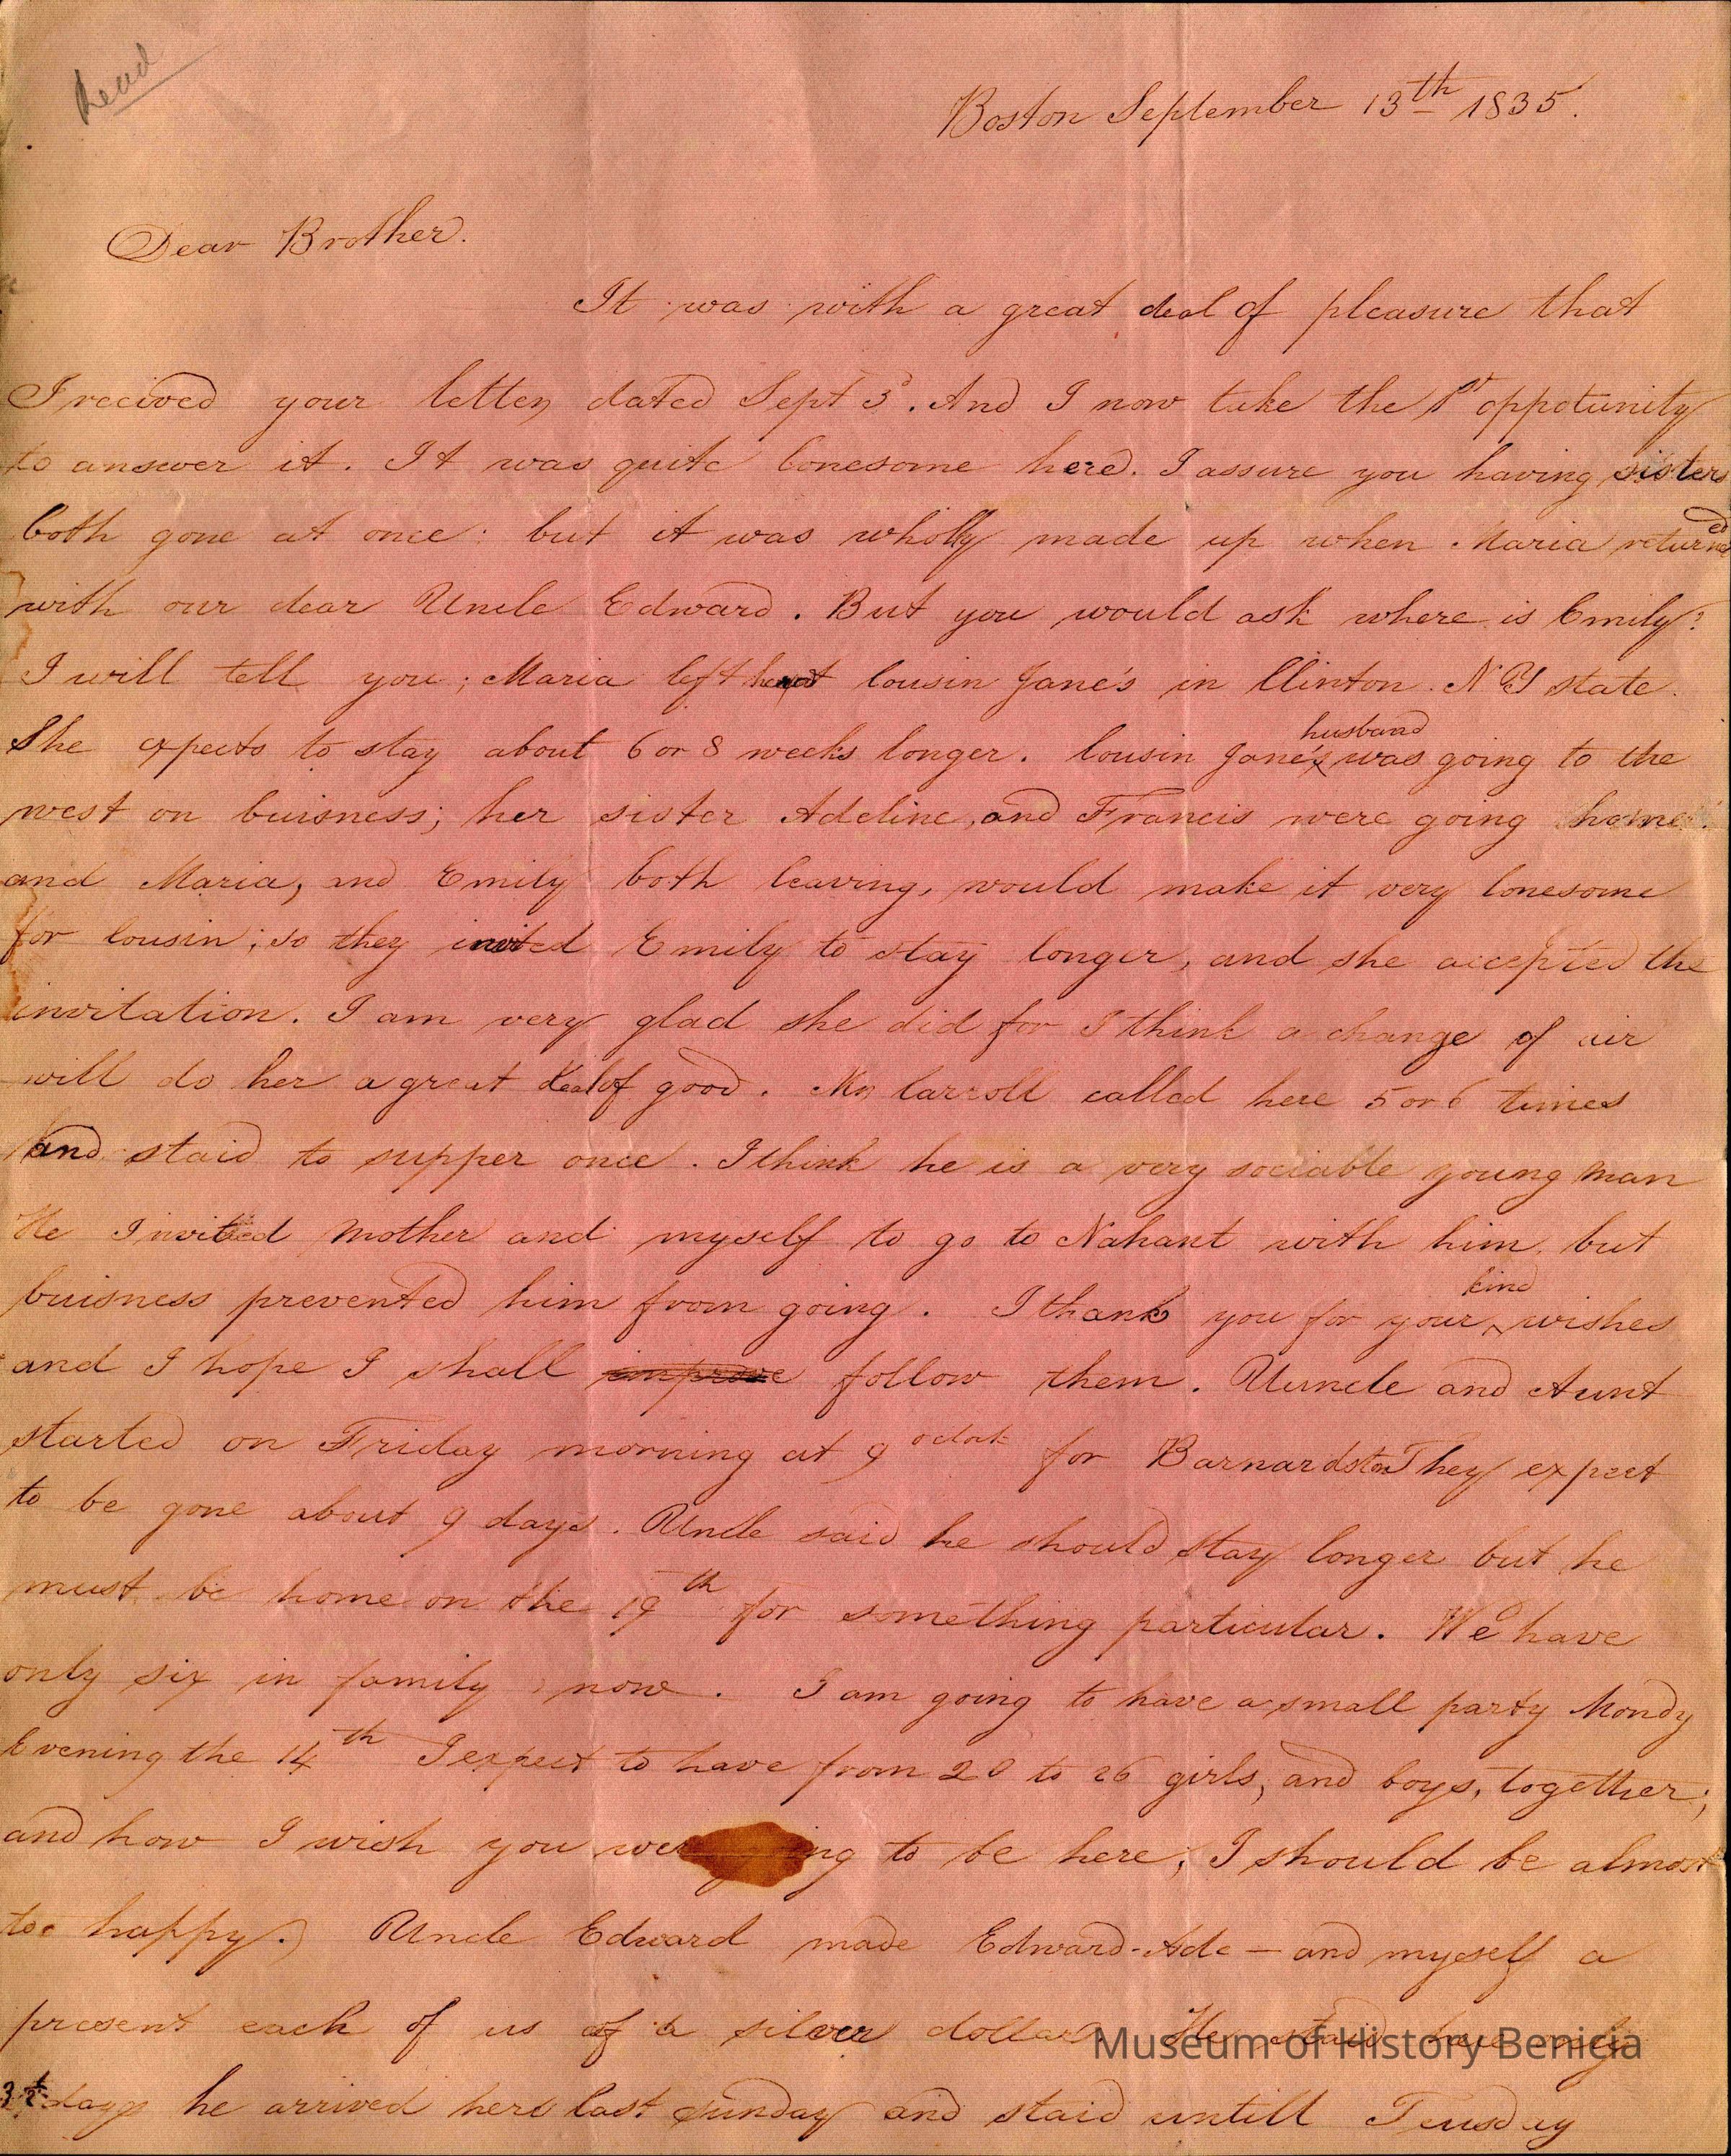 Read
Boston September 13th 1835.
Dear Brother.
It was with a great deal of pleasure that
I recived your letter, dated Sept 3d. And I now take the 1st oppotunity
to answer it. It was quite lonesome here. I assure you having sisters
both gone at once: but it was wholly made up when Maria returned
with our dear Uncle Edward. But you would ask where is Emily?
I will tell you; Maria left her at Cousin Jane's in Clinton. N Y state.
She expects to stay about 6 or 8 weeks longer. Cousin Jane's husband was going to the
west on buisness; her sister Adeline, and Francis were going home.
and Maria, and Emily both leaving, would make it very lonesome
for Cousin; so they invited Emily to stay longer, and she accepted the
invitation. I am very glad she did for I think a change of air
will do her a great deal of good. Mr Carroll called here 5 or 6 times
and staid to supper once. I think he is a very sociable young man
He Invited Mother and myself to go to Nahant with him, but
buisness prevented him from going. I thank you for your kind wishes
and I hope I shall improve follow them. Uuncle and Aunt
started on Friday morning at 9 oclock for Barnardston They expect
to be gone about 9 days. Uncle said he should stay longer but he
must be home on the 19th for something particular. We have
only six in family now. I am going to have a small party Mondy
Evening the 14th I expect to have from 20 to 26 girls, and boys, together;
and how I wish you were to be here; I should be almost
too happy. Uncle Edward made Edward - Ade - and myself a
present each of us of a silver dollar. He staid here only
3 1/2 days he arrived here last Sunday and staid untill Teusday
Museum of History Benicia